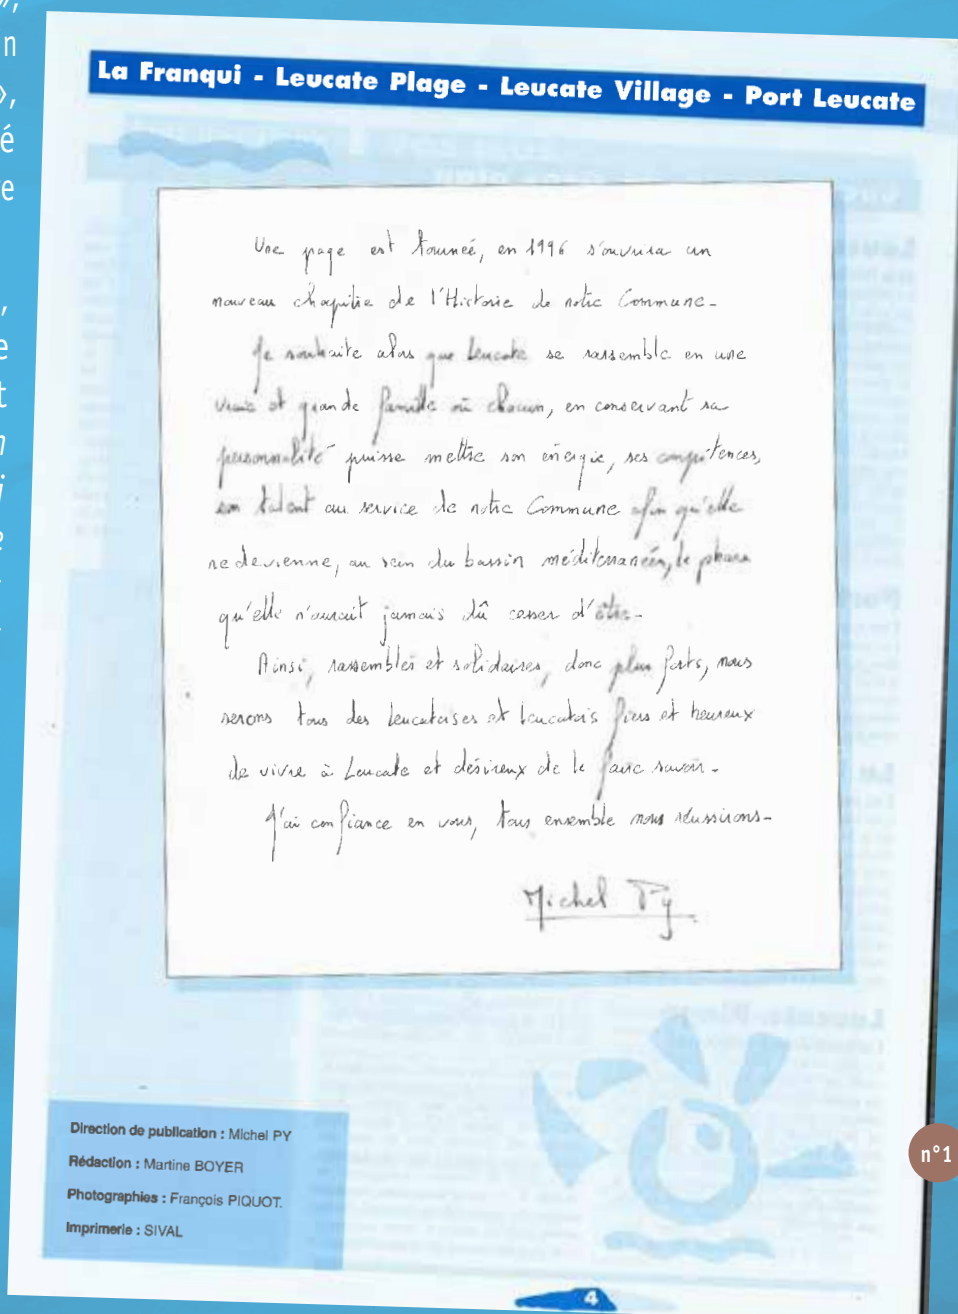 n
é
e
,
e
t
n
i
e
La Franqui - Leucate Plage - Leucate Village - Port Leucate
Une page est tournée, en 1996 s'ouvrira un
nouveau chapitre de l'Histoire de notre Commune -
Je souhaite alors que Leucate se rassemble en une
vraie et grande famille où chacun, en conservant sa
personnalité puisse mettre son énergie, ses compétences,
son talent au service de notre Commune afin qu'elle
redevienne, au sein du bassin méditerranéen, le phare
qu'elle n'aurait jamais dû cesser d'être -
Ainsi, rassemblés et solidaires, donc plus forts, nous
serons tous des Leucatoises et Leucatois fiers et heureux
de vivre à Leucate et désireux de le faire savoir -
J'ai confiance en vous, tous ensemble nous réussirons -
Michel Py
Leucate-Plage
Direction de publication : Michel PY
Rédaction : Martine BOYER
Photographies : François PIQUOT.
Imprimerie : SIVAL
n°1
4